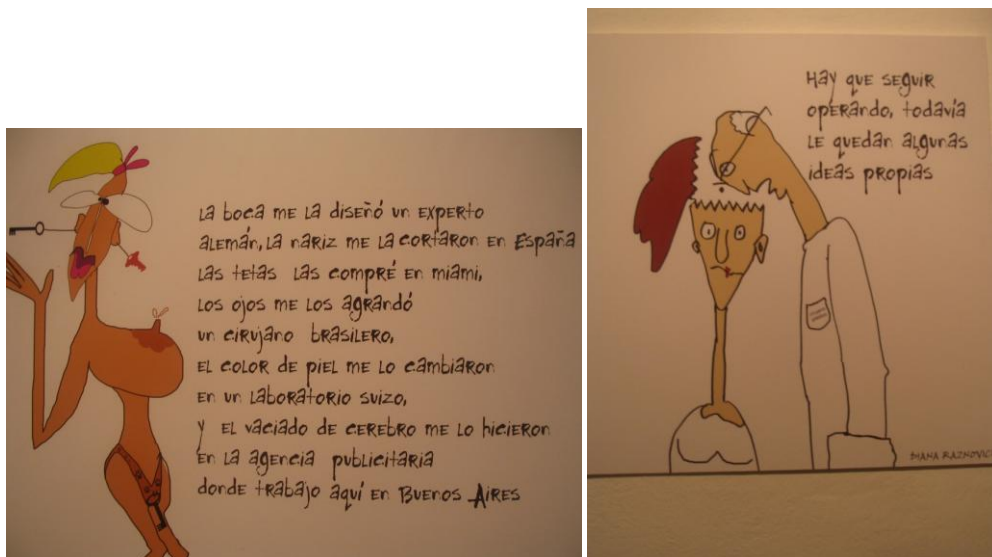 La boca me la diseñó un experto
alemán, La nariz me la cortaron en España
Las tetas las compré en miami,
Los ojos me los agrandó
un cirujano brasilero,
el color de piel me lo cambiaron
en un laboratorio suizo,
y el vaciado de cerebro me lo hicieron
en la agencia publicitaria
donde trabajo aquí en Buenos Aires
Hay que seguir
operando, todavía
le quedan algunas
ideas propias
DIANA RAZNOVICH